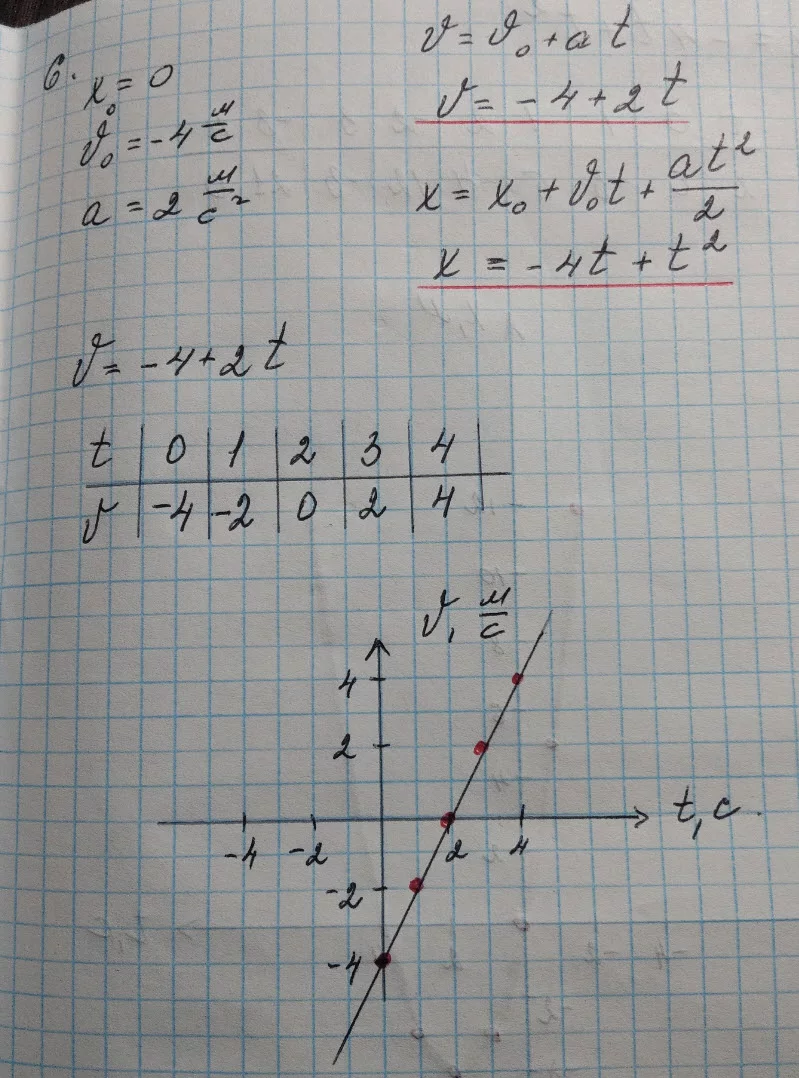 6.
x₀ = 0
ϑ₀ = -4 м/с
a = 2 м/с²
ϑ = ϑ₀ + a t
ϑ = -4 + 2 t
x = x₀ + ϑ₀t + at²/2
x = -4t + t²
ϑ = -4 + 2 t
t | 0 | 1 | 2 | 3 | 4
ϑ | -4 | -2 | 0 | 2 | 4
ϑ, м/с
4
2
t, с
-4 -2 2 4
-2
-4